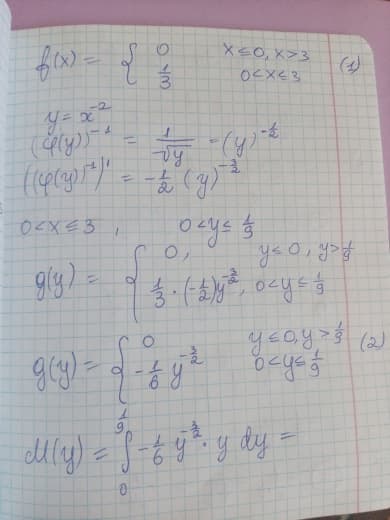 f(x) = { 0 x ≤ 0, x > 3
1/3 0 < x ≤ 3 (1)
y = x^-2
(φ(y))^-1 = 1/√y = (y)^-1/2
((φ(y))^-1)' = -1/2 (y)^-3/2
0 < x ≤ 3, 0 < y ≤ 1/9
g(y) = { 0, y ≤ 0, y > 1/9
1/3 · (-1/2) y^-3/2, 0 < y ≤ 1/9
g(y) = { 0 y ≤ 0, y > 1/9
-1/6 y^-3/2 0 < y ≤ 1/9 (2)
M(y) = ∫_0^1/9 -1/6 y^-3/2 · y dy =